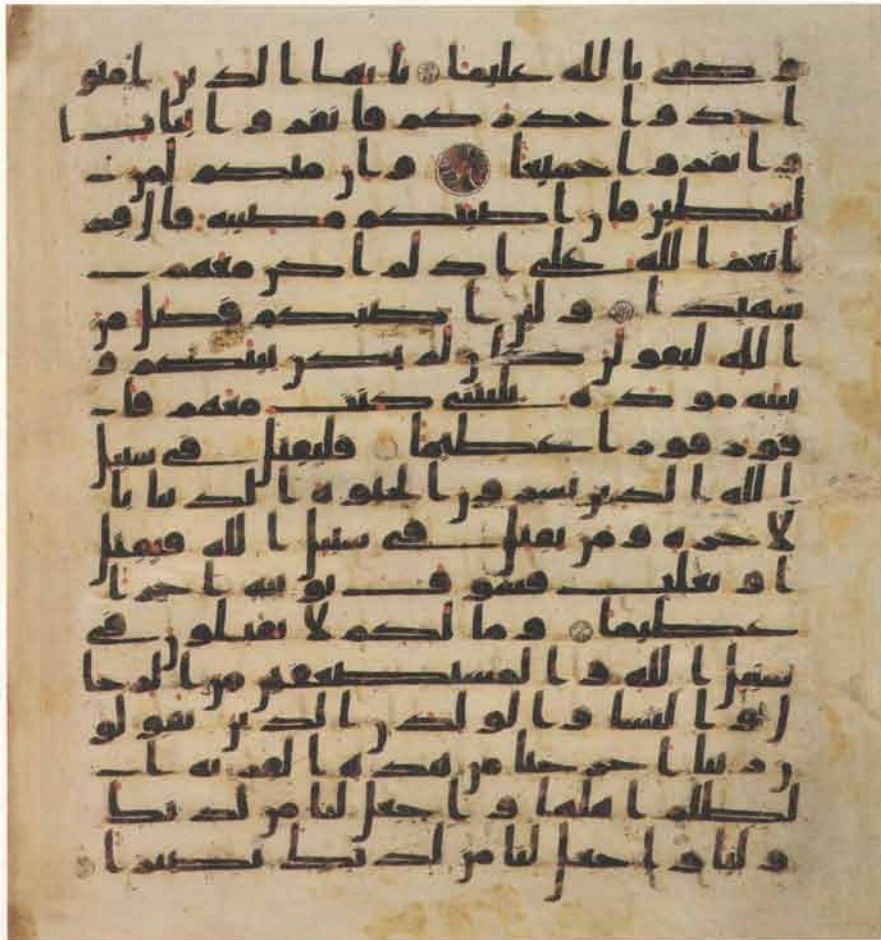 و كفى بالله عليما يا يها الذين امنو
ا خذوا حذركم فانفروا ثبات ا
و انفروا جميعا و ان منكم لمن
ليبطين فان اصبتكم مصيبه قال قد
انعم الله على اذ لم اكن معهم
شهيدا و لين اصبكم فضل من
الله ليقولن كان لم يكن بينكم و
بينه موده يليتني كنت معهم فا
فوز فوزا عظيما فليقتل في سبيل
الله الذين يشرون الحيوه الدنيا با
لاخره و من يقتل في سبيل الله فيقتل
او يغلب فسوف نوتيه اجرا
عظيما و ما لكم لا تقتلون في
سبيل الله و المستضعفين من الرجا
ل و النسا و الولدن الذين يقولو
ن ربنا اخرجنا من هذه القريه ا
لظلم اهلها و اجعل لنا من لدنك
و ليا و اجعل لنا من لدنك نصيرا